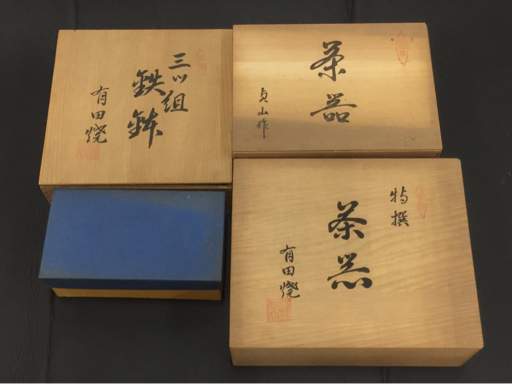 三ツ組
鉄鉢
有田焼
茶器
貞山作
特撰
茶器
有田焼